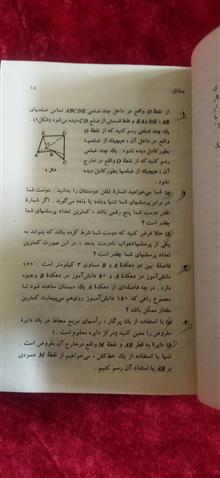 مسائل ۱۵
۱. از نقطهٔ O واقع در داخل چند ضلعی ABCDE تمامی ضلعهای
AB ، DE و EA و فقط قسمتی از ضلع CD دیده می‌شود (شکل ۱).
یک چند ضلعی رسم کنید که از نقطهٔ
O واقع در داخل آن، هیچیک از ضلعها
بطور کامل دیده نشود. یک چند ضلعی
رسم کنید که از نقطهٔ O واقع در خارج
آن، هیچیک از ضلعها بطور کامل
دیده نشود.
شکل ۱
شما می‌خواهید شمارهٔ تلفن دوستتان را بدانید. دوست شما
در برابر پرسشهای شما تنها «بله» یا «نه» می‌گوید. اگر شمارهٔ
تلفن دوست شما پنج رقمی باشد، کمترین تعداد پرسشهای شما
چقدر است؟
حالا فرض کنید که دوست شما شرط کرده باشد که بتواند به
یکی از پرسشهایتان جواب نادرست بدهد، در این صورت کمترین
تعداد پرسشهای شما چقدر است؟
فاصلهٔ بین دو دهکدهٔ A و B مساوی ۳ کیلومتر است. ۱۰۰
دانش‌آموز در دهکدهٔ A و ۵۰ دانش‌آموز در دهکدهٔ B وجود
دارد. در چه فاصله‌ای از دهکدهٔ A یک دبستان ساخته شود تا
مجموع راهی که ۱۵۰ دانش‌آموز روزی می‌پیمایند کمترین
مقدار ممکن باشد؟
با استفاده از یک پرگار، رأسهای مربع محاط در یک دایرهٔ
مفروض را معین کنید (مرکز دایره معلوم است).
دایرهٔ به قطر AB و نقطهٔ M واقع در خارج آن مفروض است.
تنها با استفاده از یک خط‌کش، می‌خواهیم از نقطهٔ M عمودی
بر AB یا امتداد آن رسم کنیم.